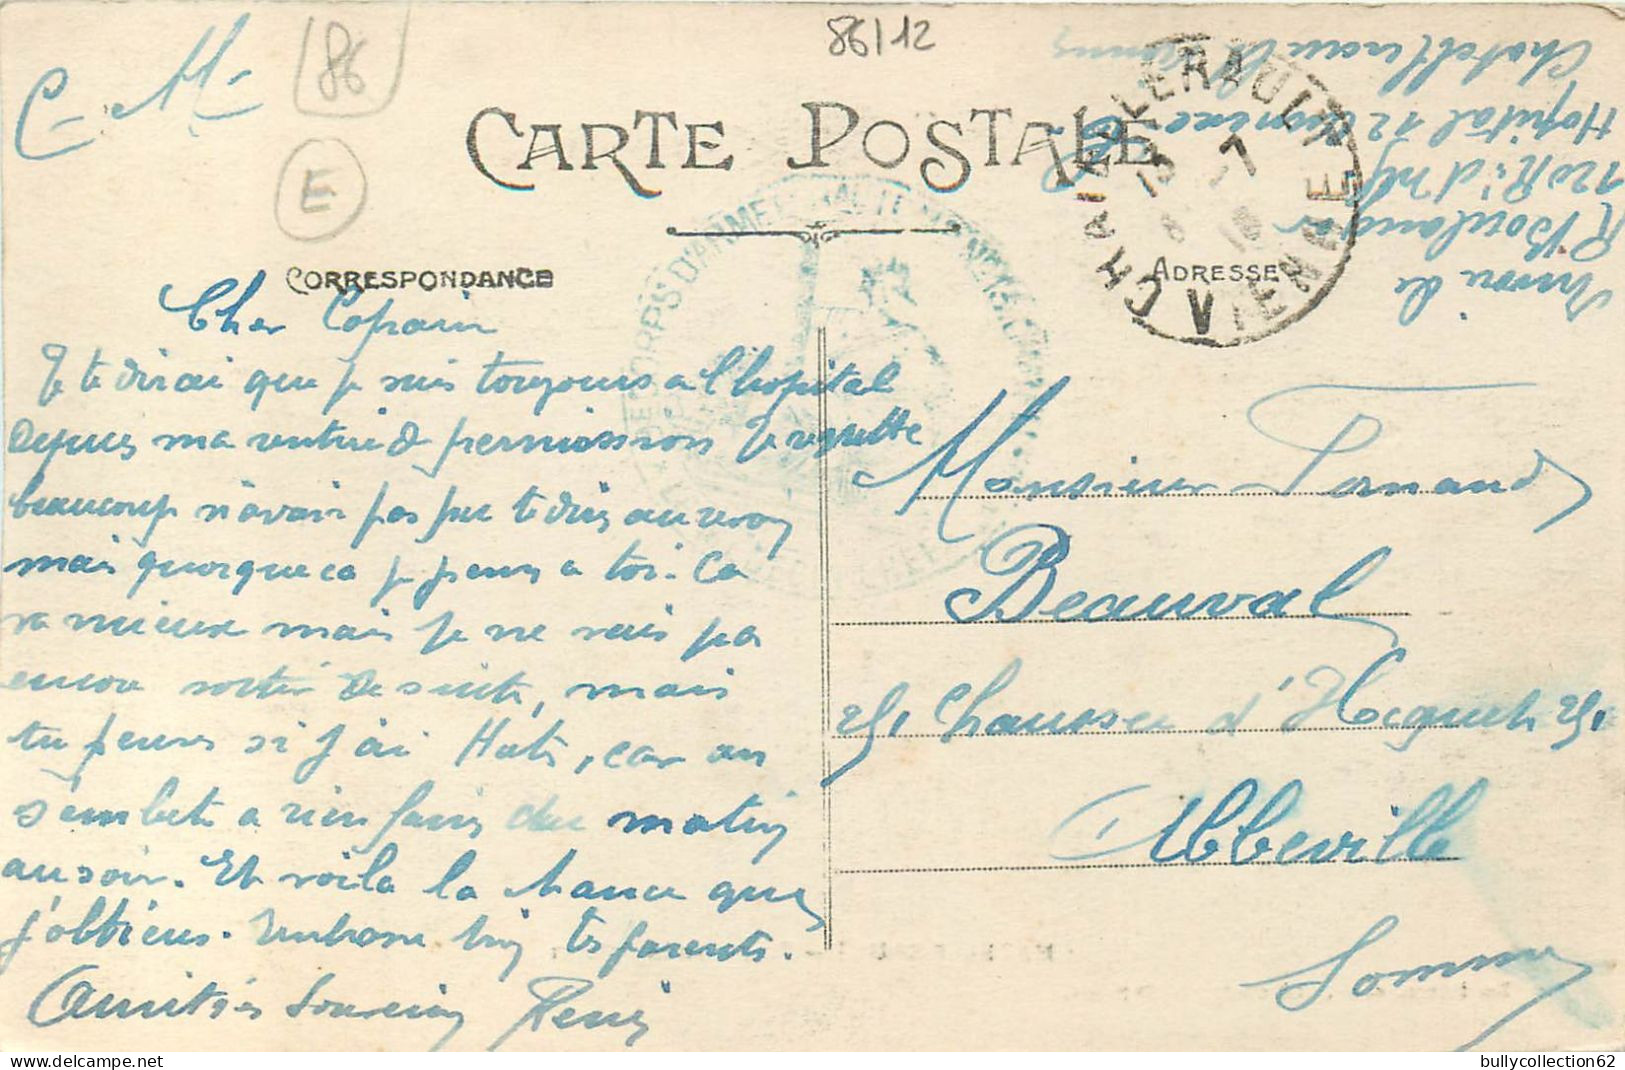 86/12
C. M.
86
E
CARTE POSTALE
CORRESPONDANCE
ADRESSE
CHATELLERAULT
VIENNE
Envoi de
R Boulanger
120 R. d'Inf
Hopital 12
Chatellerault Vienne
Cher Copain
Je te dirai que je suis toujours a l'hopital
depuis ma rentrée de permission Je regrette
beaucoup n'avoir pas pu te dire au revoir
mais quoique ca je pense a toi. Ca
va mieux mais je ne vais pas
encore sortir de suite, mais
tu penses si j'ai Hate, car on
s'embete a rien faire du matin
au soir. Et voila la chance que
j'obtiens. Embrasse bien tes parents.
Amitiés Souvenir René
Monsieur Fernand
Beauval
25, Chaussée d'Hocquet 25,
Abbeville
Somme
bullycollection62